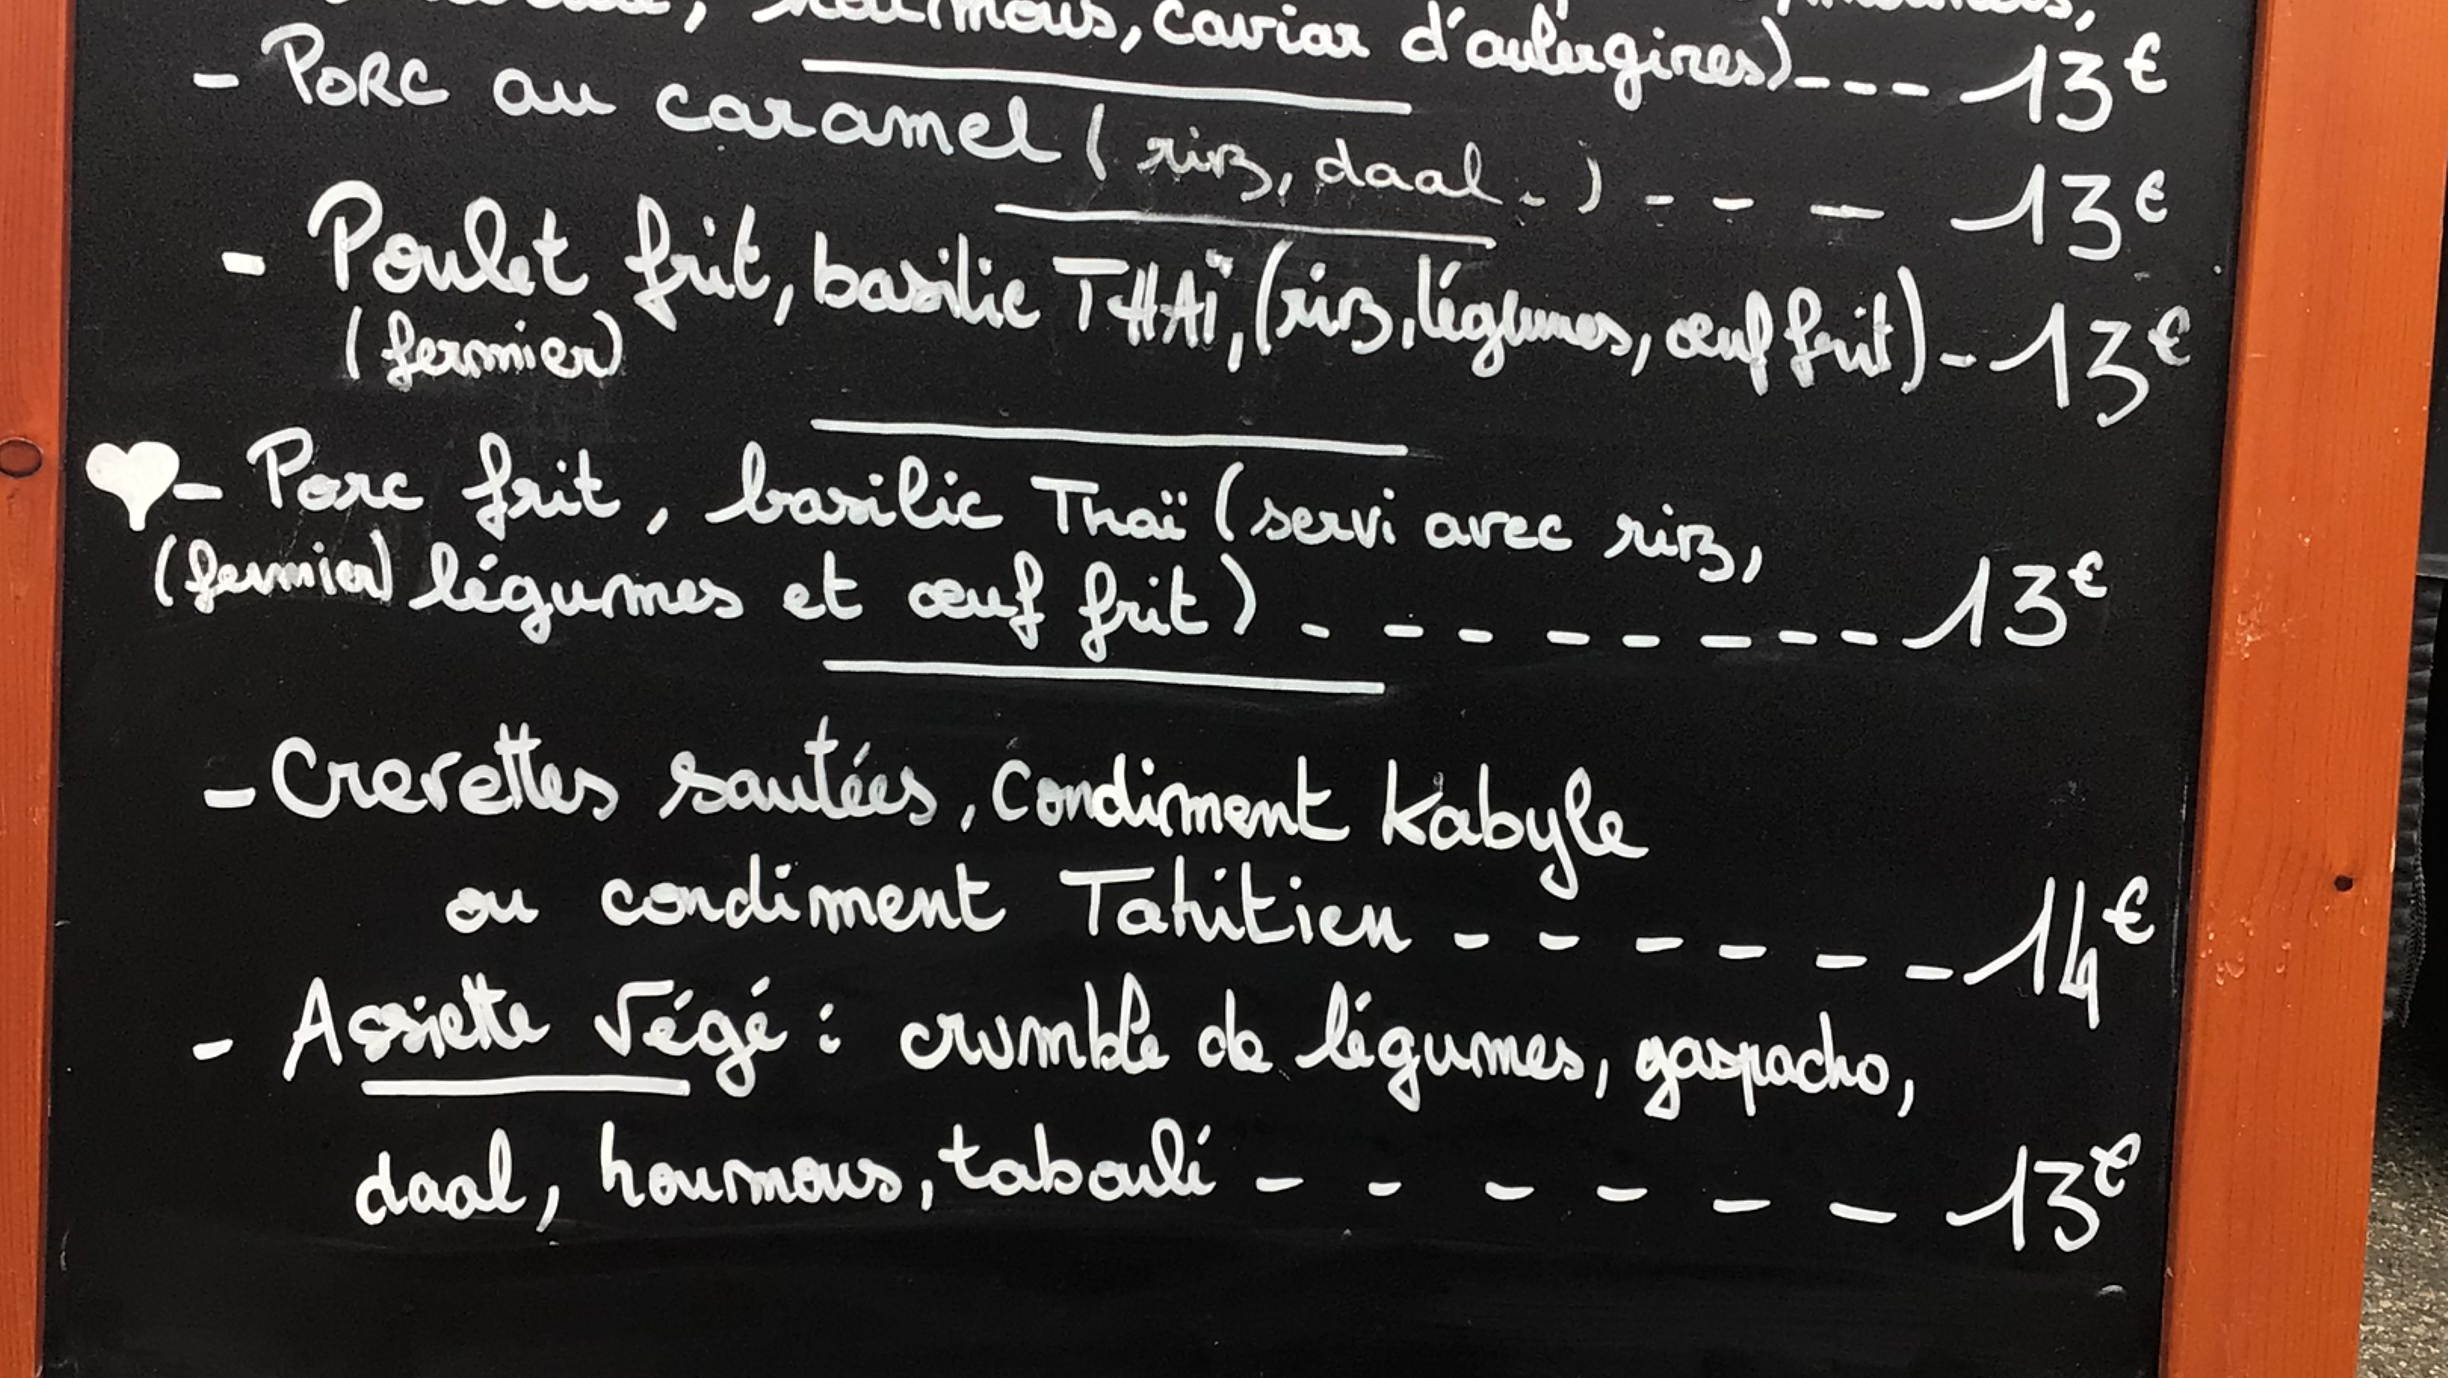 houmous, caviar d'aubergines)--- 13€
- PORC au caramel (riz, daal..) - - - 13€
- Poulet frit, basilic THAÏ, (riz, légumes, œuf frit) - 13€
(fermier)
- Porc frit, basilic Thaï (servi avec riz,
(fermier) légumes et œuf frit) - - - - - - - - - 13€
- Crevettes sautées, condiment Kabyle
ou condiment Tahitien - - - - - - 14€
- Assiette Végé : crumble de légumes, gaspacho,
daal, houmous, taboulé - - - - - - 13€